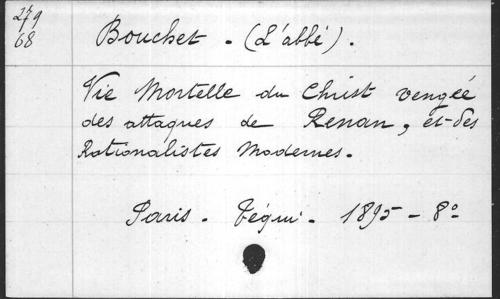 279
68
Bouchet - (L'abbé).
Vie Mortelle du Christ vengée
des attaques de Renan, et des
Rationalistes Modernes.
Paris - Téqui - 1895 - 8°